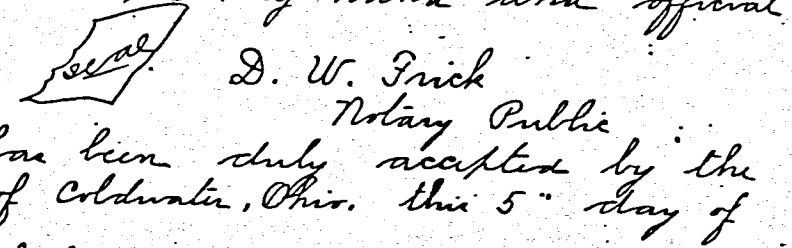 my hand and official
seal
D. W. Frick
Notary Public
has been duly accepted by the
of Coldwater, Ohio. this 5" day of